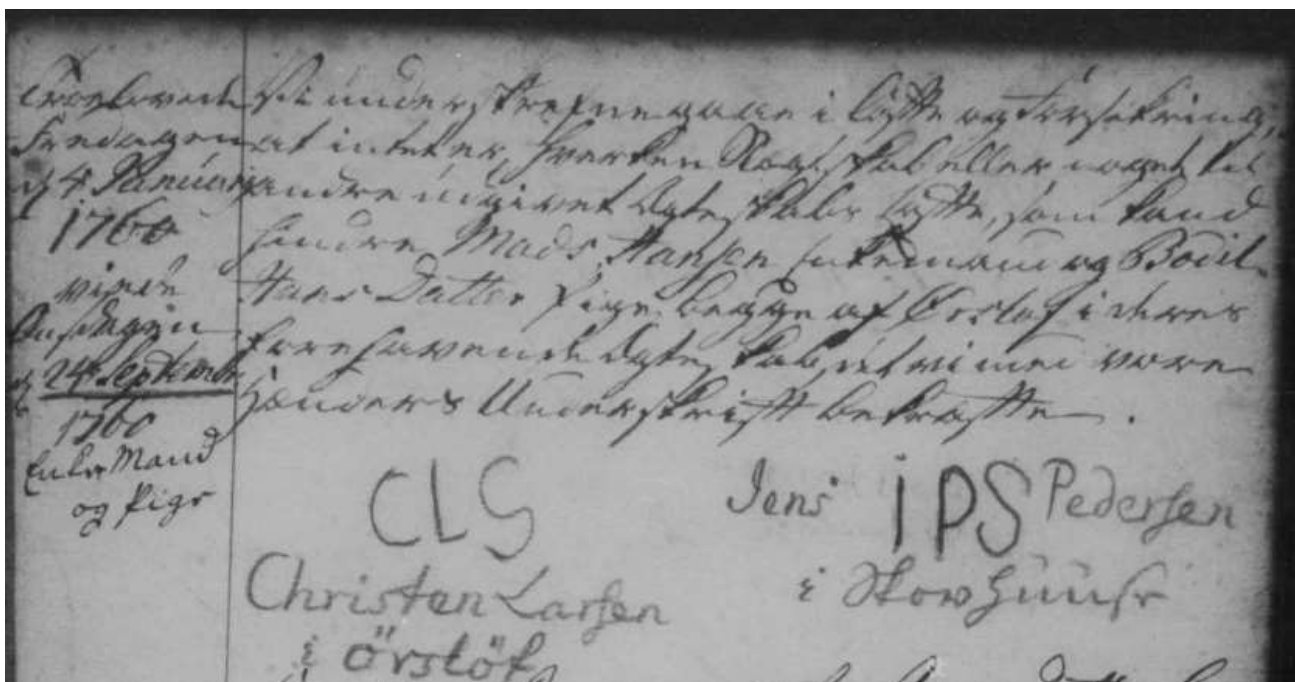 Troelovede
Fredagen
d 4 Januarj
1760
viede
Onsdagen
d 24 Septembr
1760
Enke Mand
og Pige
Vi underskrefne gaar i løfte og forsikring,
at intet er, hverken Slægtskab eller noget til
andre udgivet Ægteskabs løfte, som kand
hindre Mads Hansen Enkemand og Bodil
Hans Datter Pige begge af Ørsløf i deres
forehavende Ægteskab, det vi med vore
Hænders Underskrift bekræfte.
CLS
Christen Larsen
i Örslöf
Jens IPS Pedersen
i Skovhuuse